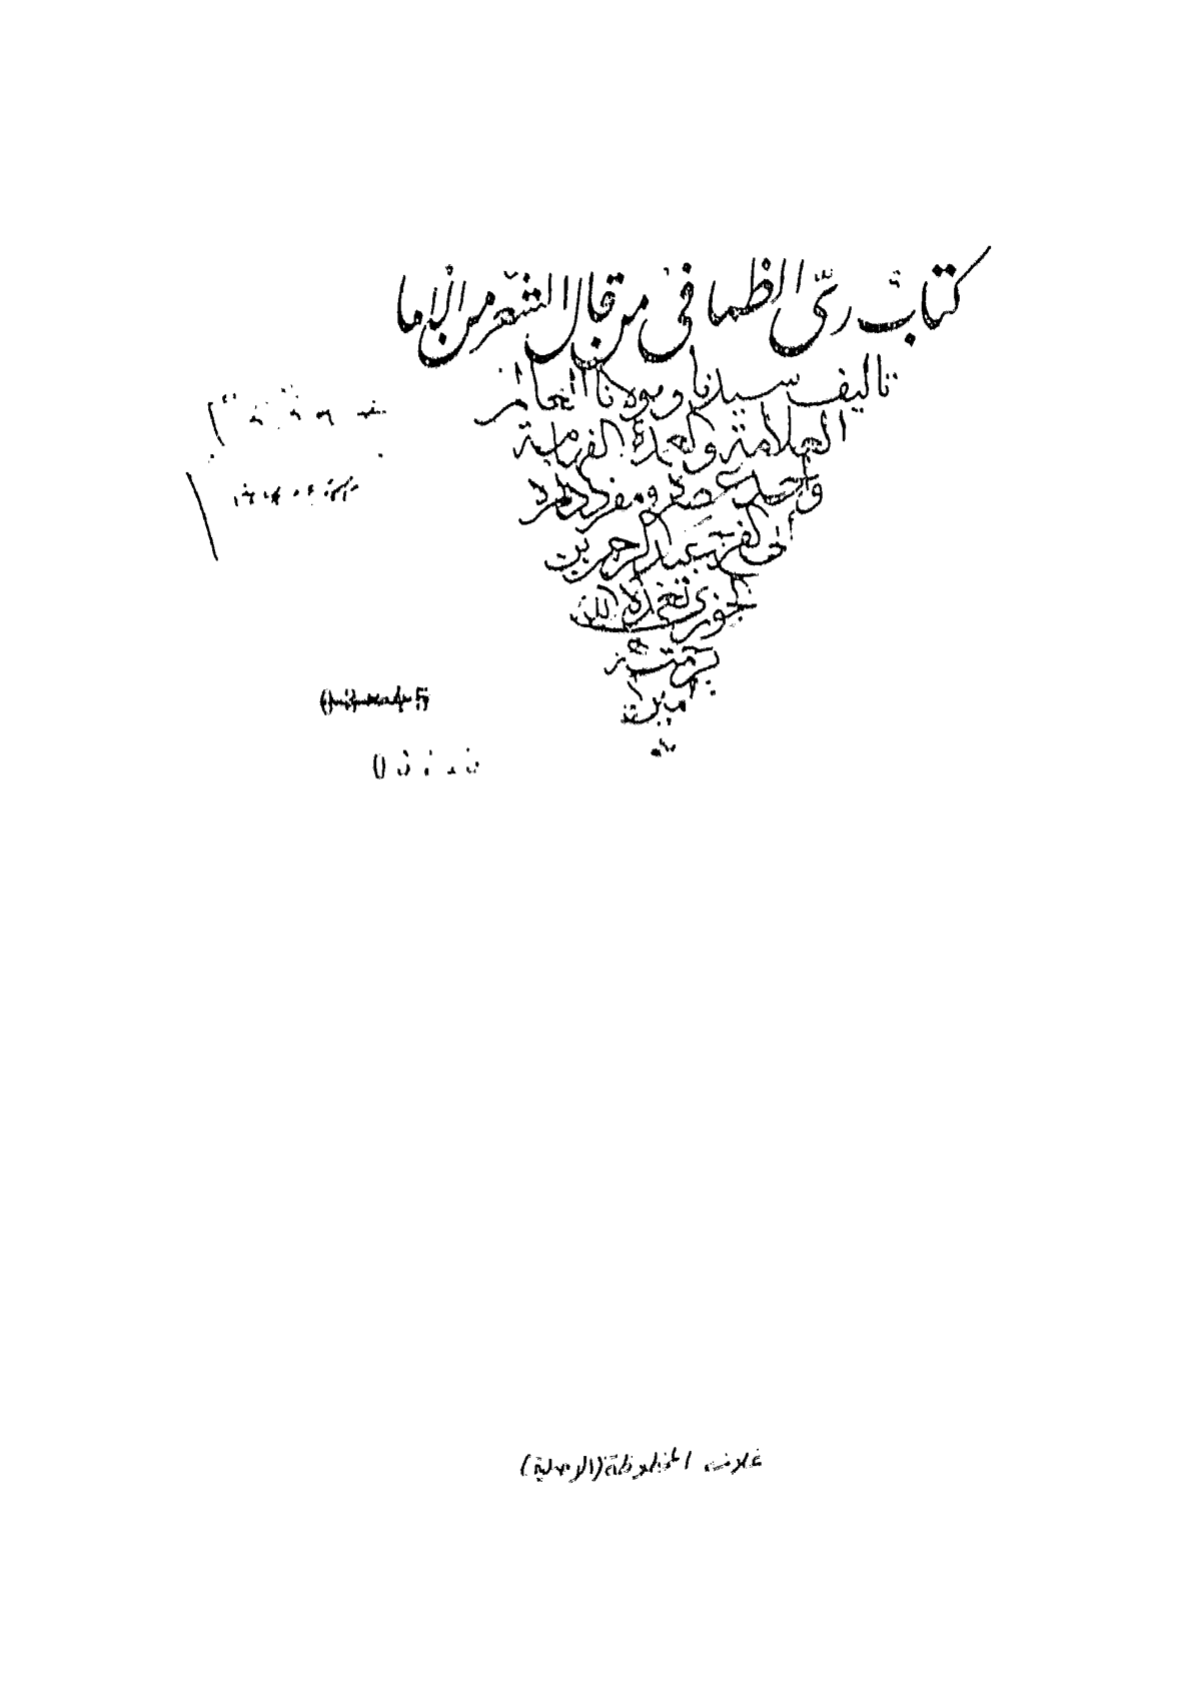 كتاب ريّ الظما في من قال الشعر من الاما
تاليف سيدنا ومولانا العالم
العلامة والعمدة الفهامة
واحد عصره ومفرد دهره
أبي الفرج عبد الرحمن بن
الجوزي تغمده الله
برحمته
امين
غلاف المخطوطة (الاصلية)